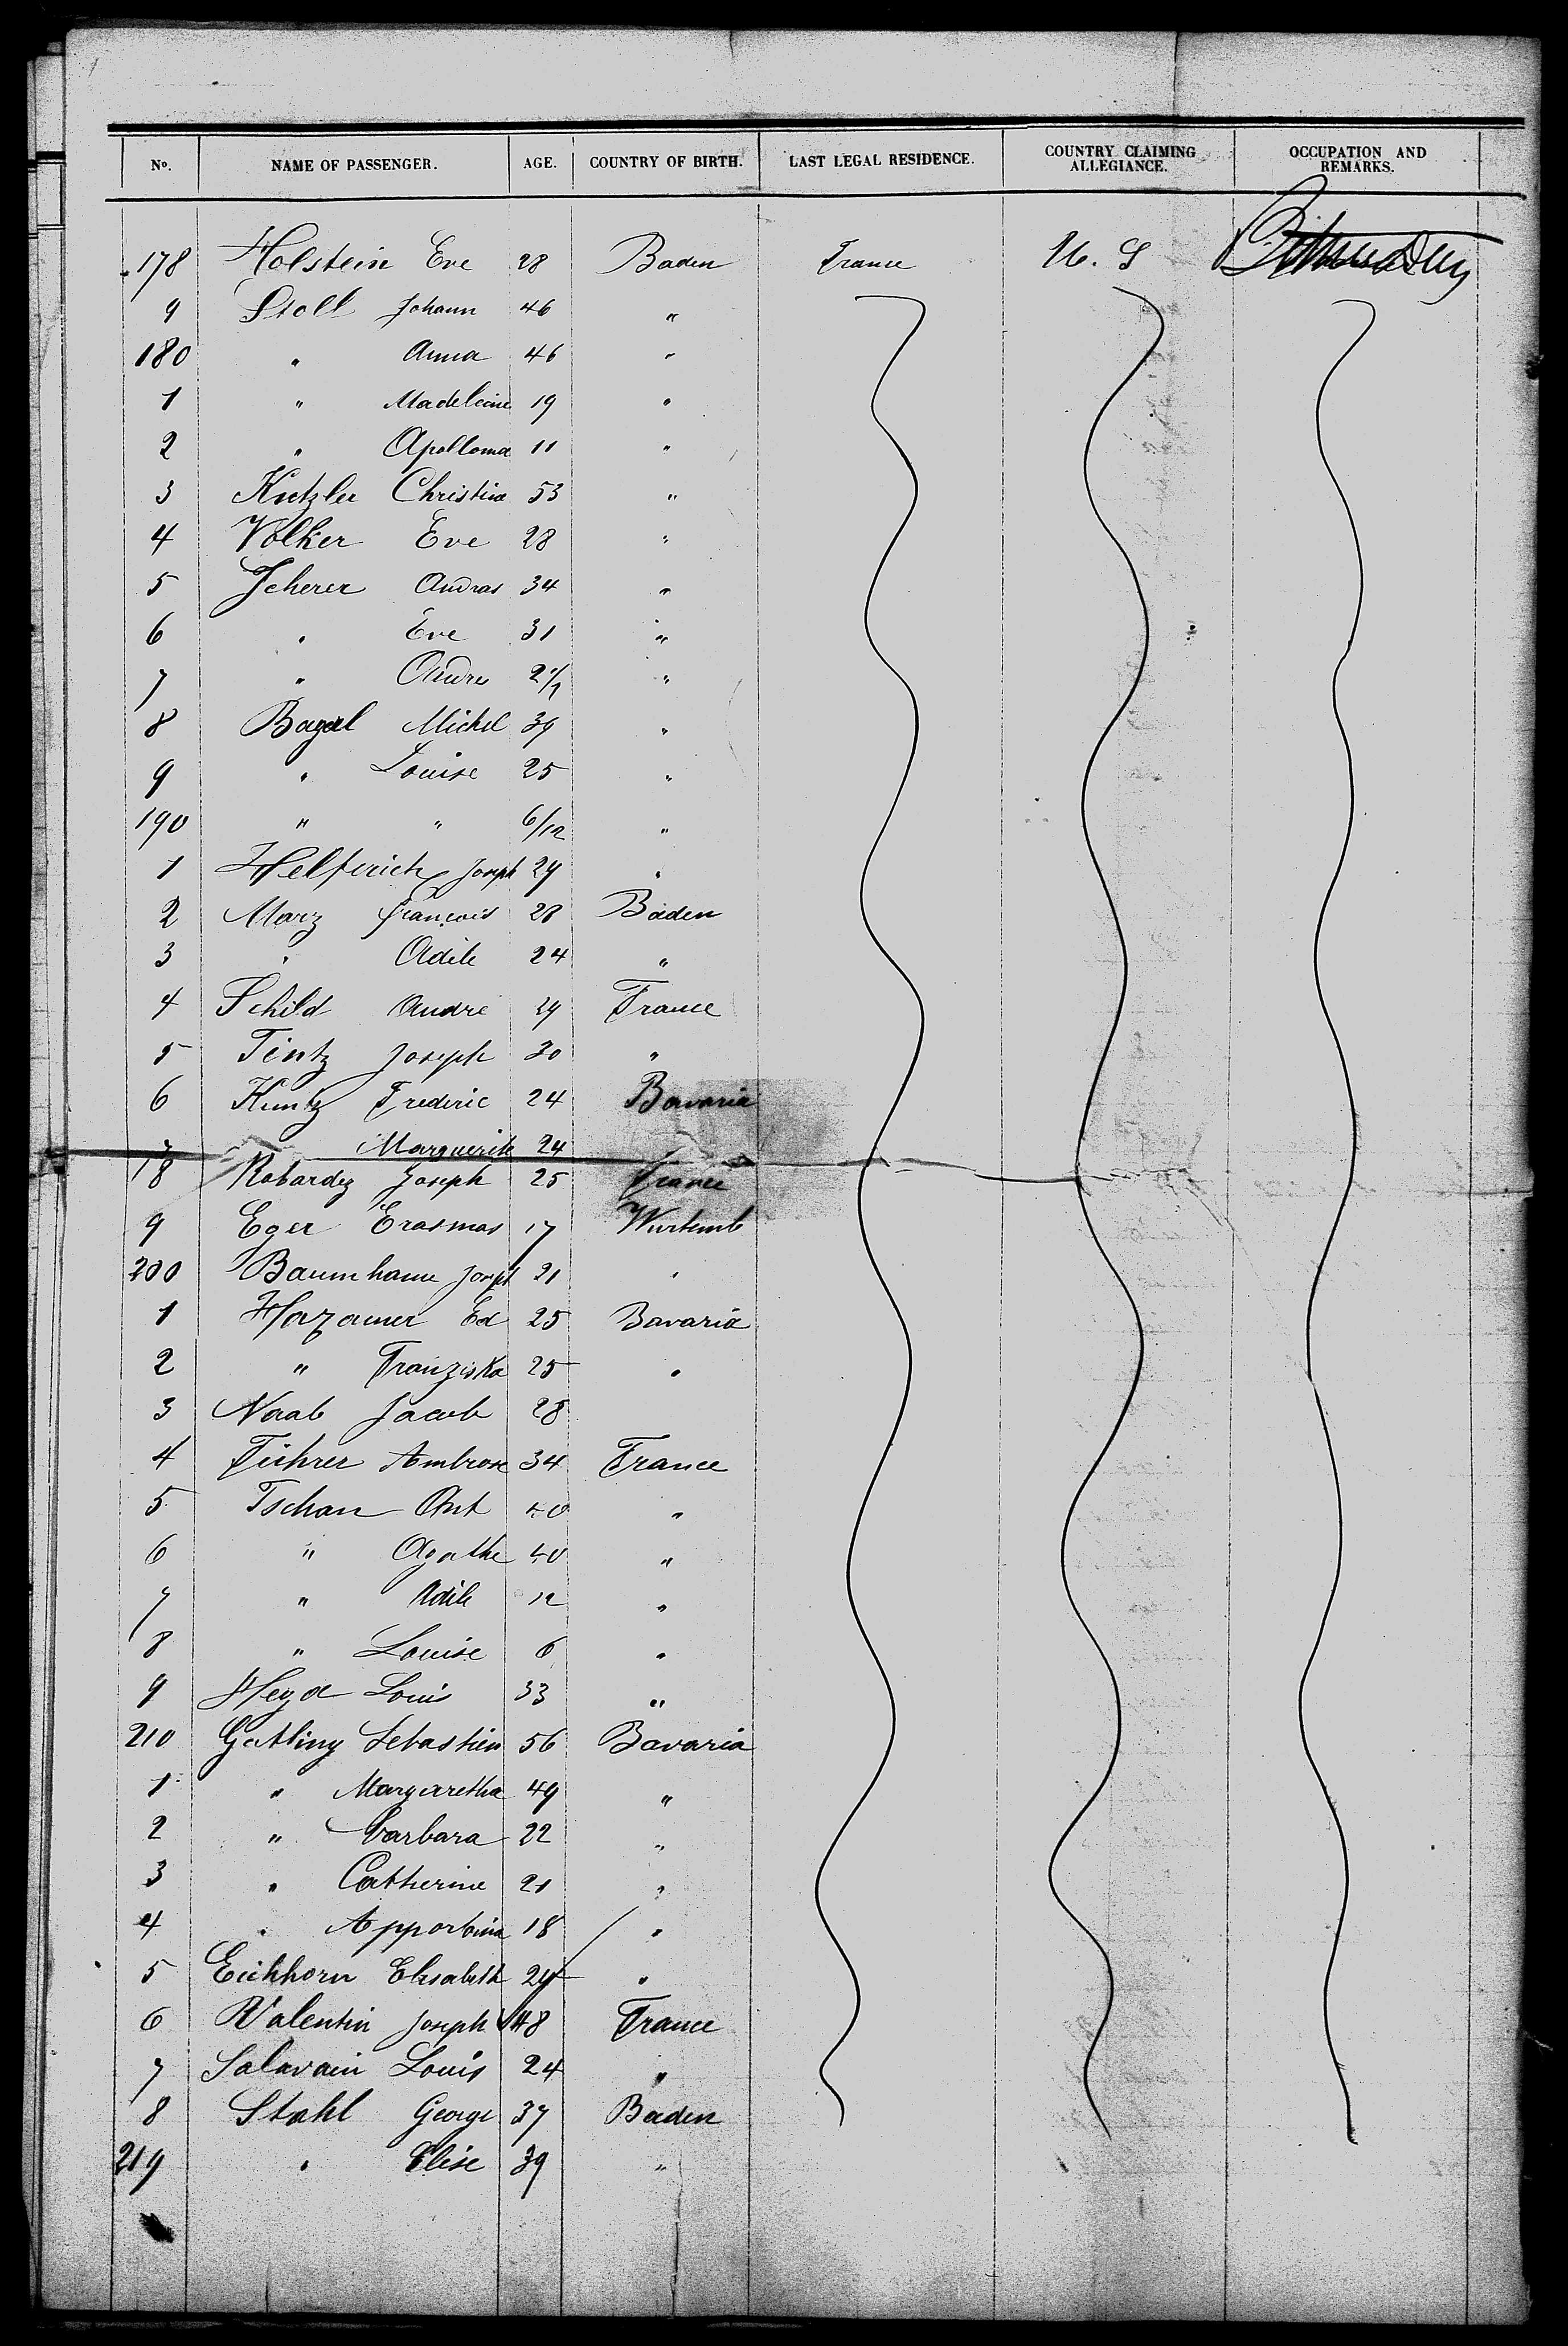 No. NAME OF PASSENGER. AGE. COUNTRY OF BIRTH. LAST LEGAL RESIDENCE. COUNTRY CLAIMING ALLEGIANCE. OCCUPATION AND REMARKS.
178 Holstein Eve 28 Baden France U. S
9 Stoll Johann 46 "
180 " Anna 46 "
1 " Madeleine 19 "
2 " Apollonia 11 "
3 Kutzler Christina 53 "
4 Volker Eve 28 "
5 Scherer Andras 34 "
6 " Eve 31 "
7 " Andre "
8 Michel 39 "
9 " Louise 25 "
190 " " 6/12 "
1 Helferich Joseph 29 "
2 Marz François 28 Baden
3 " Adile 24 "
4 Schild Andre 29 France
5 Tintz Joseph 30 "
6 Kuntz Frederic 24 Bavaria
7 Marguerite 24
18 Robardez Joseph 25 France
9 Eger Erasmas 17 Wurtemb
200 Baumhaue Joseph 21 "
1 Hazamer Ed 25 Bavaria
2 " Franziska 25 "
3 Naab Jacob 28
4 Fichrer Ambrose 34 France
5 Tschan Ant 40 "
6 " Agathe 40 "
7 " Adile 12 "
8 " Louise 6 "
9 Heyd Louis 33 "
210 Gatling Sebastien 56 Bavaria
1 " Margaretha 49 "
2 " Barbara 22 "
3 " Catherine 21 "
4 " 18 "
5 Eichhorn Elisabeth 24 "
6 Valentin Joseph 48 France
7 Salavain Louis 24 "
8 Stahl George 37 Baden
219 " Elise 39 "